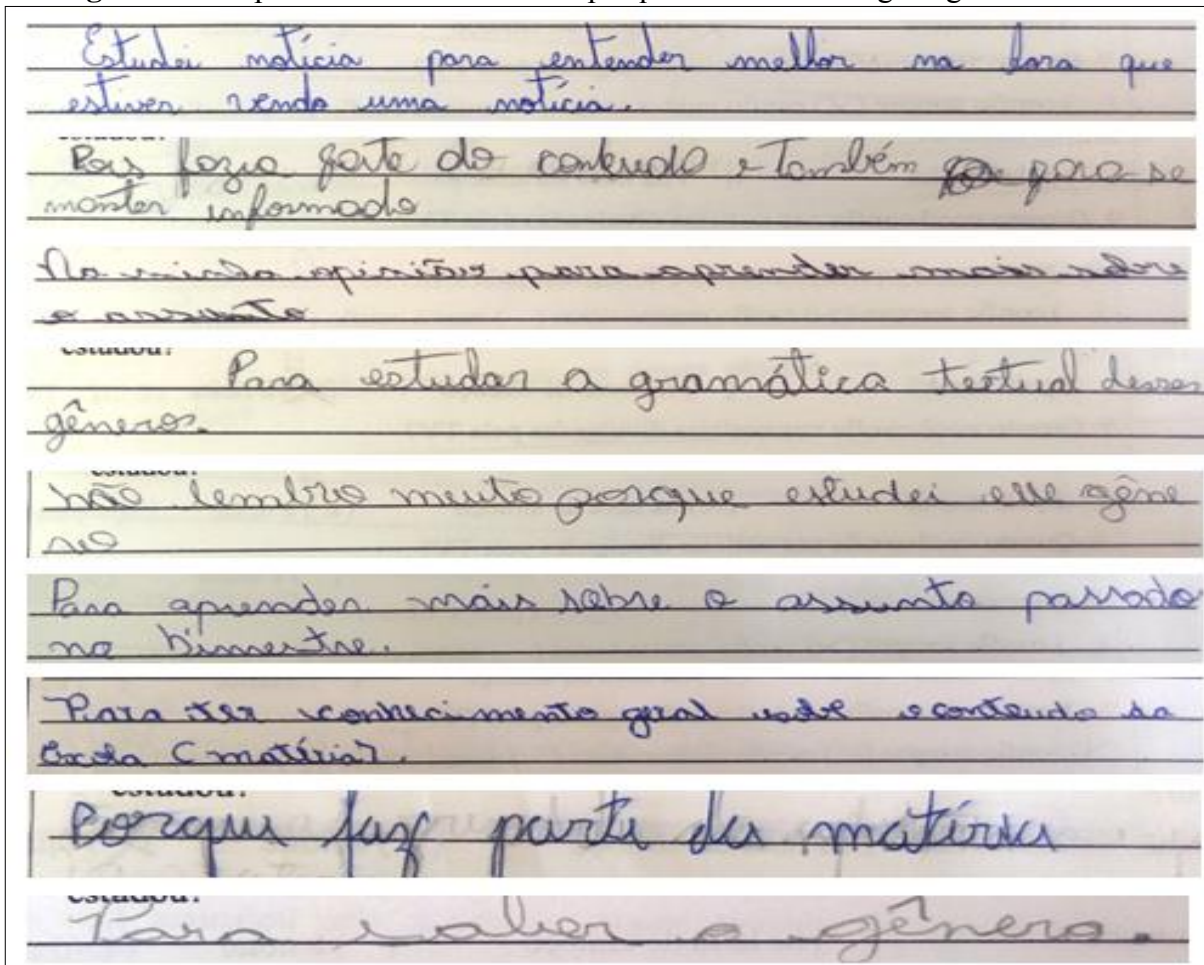 Estudei notícia para entender melhor na hora que
estiver vendo uma notícia.
estudou?
Pois fazia parte do conteudo e também para se
manter informado
Na minha opinião para aprender mais sobre
o assunto
estudou?
Para estudar a gramática textual desses
gêneros.
estudou?
não lembro muito porque estudei esse gêne
ro
Para aprender mais sobre o assunto passado
no bimestre.
Para ter conhecimento geral sobre o conteudo da
Escola (matéria).
estudou?
Porque faz parte da matéria
estudou?
Para saber o gênero.